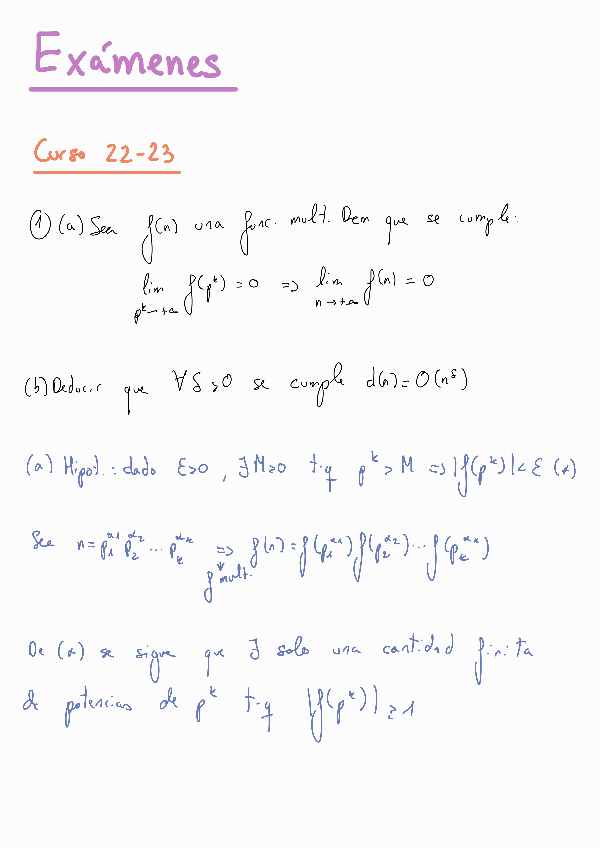 Exámenes
Curso 22-23
① (a) Sea f(n) una func. mult. Dem que se cumple:
lim f(p^k) = 0 => lim f(n) = 0
p^k → +∞ n → +∞
(b) Deducir que ∀δ>0 se cumple d(n) = O(n^δ)
(a) Hipot.: dado ε>0, ∃M>0 t.q p^k > M => |f(p^k)| < ε (*)
Sea n = p_1^α1 p_2^α2 ... p_k^αk => f(n) = f(p_1^α1) f(p_2^α2) ... f(p_k^αk)
f mult.
De (*) se sigue que ∃ solo una cantidad finita
de potencias de p^k t.q |f(p^k)| ≥ 1